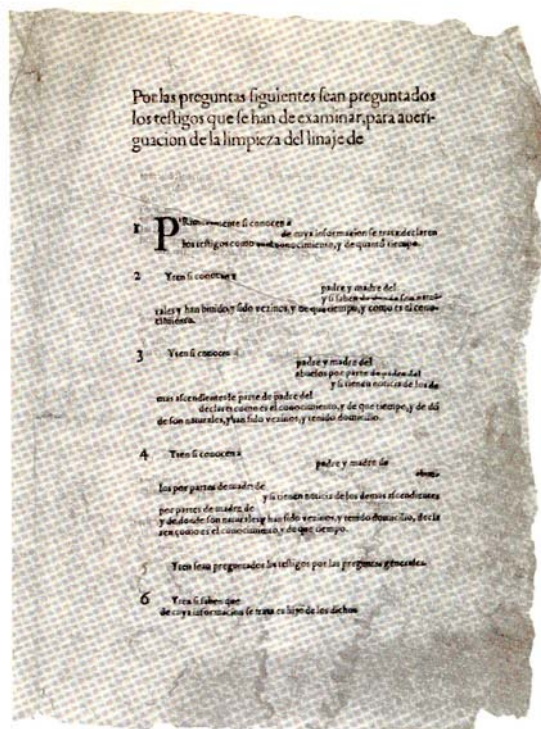 Por las preguntas ſiguientes ſean preguntados
los teſtigos que ſe han de examinar, para aueri-
guacion de la limpieza del linaje de
1 PRimeramente ſi conocen a
de cuya informacion ſe trata declaren
los teſtigos como conocimiento, y de quanto tiempo.
2 Yten ſi conocen a
padre y madre del
y ſi ſaben de donde ſon natu-
rales y han biuido, y ſido vezinos, y de que tiempo, y como es el cono-
cimiento.
3 Yten ſi conocen a
padre y madre del
abuelos por parte de padre del
y ſi tienen noticia de los de
mas aſcendientes de parte de padre del
declaren como es el conocimiento, y de que tiempo, y de dõ
de ſon naturales, y han ſido vezinos, y tenido domicilio.
4 Yten ſi conocen a
padre y madre de
abue-
los por partes de madre de
y ſi tienen noticia de los demas aſcendientes
por partes de madre de
y de donde ſon naturales y han ſido vezinos, y tenido domicilio, decla
ren como es el conocimiento, y de que tiempo.
5 Yten ſean preguntados los teſtigos por las preguntas generales.
6 Yten ſi ſaben que
de cuya informacion ſe trata es hijo de los dichos